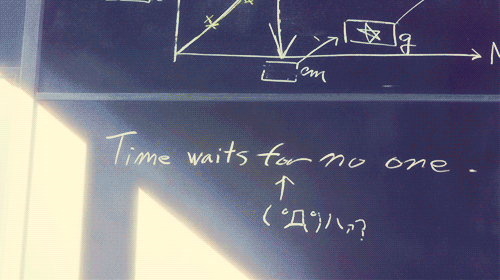 g
cm
Time waits for no one.
↑
(°Д°)ハァ?